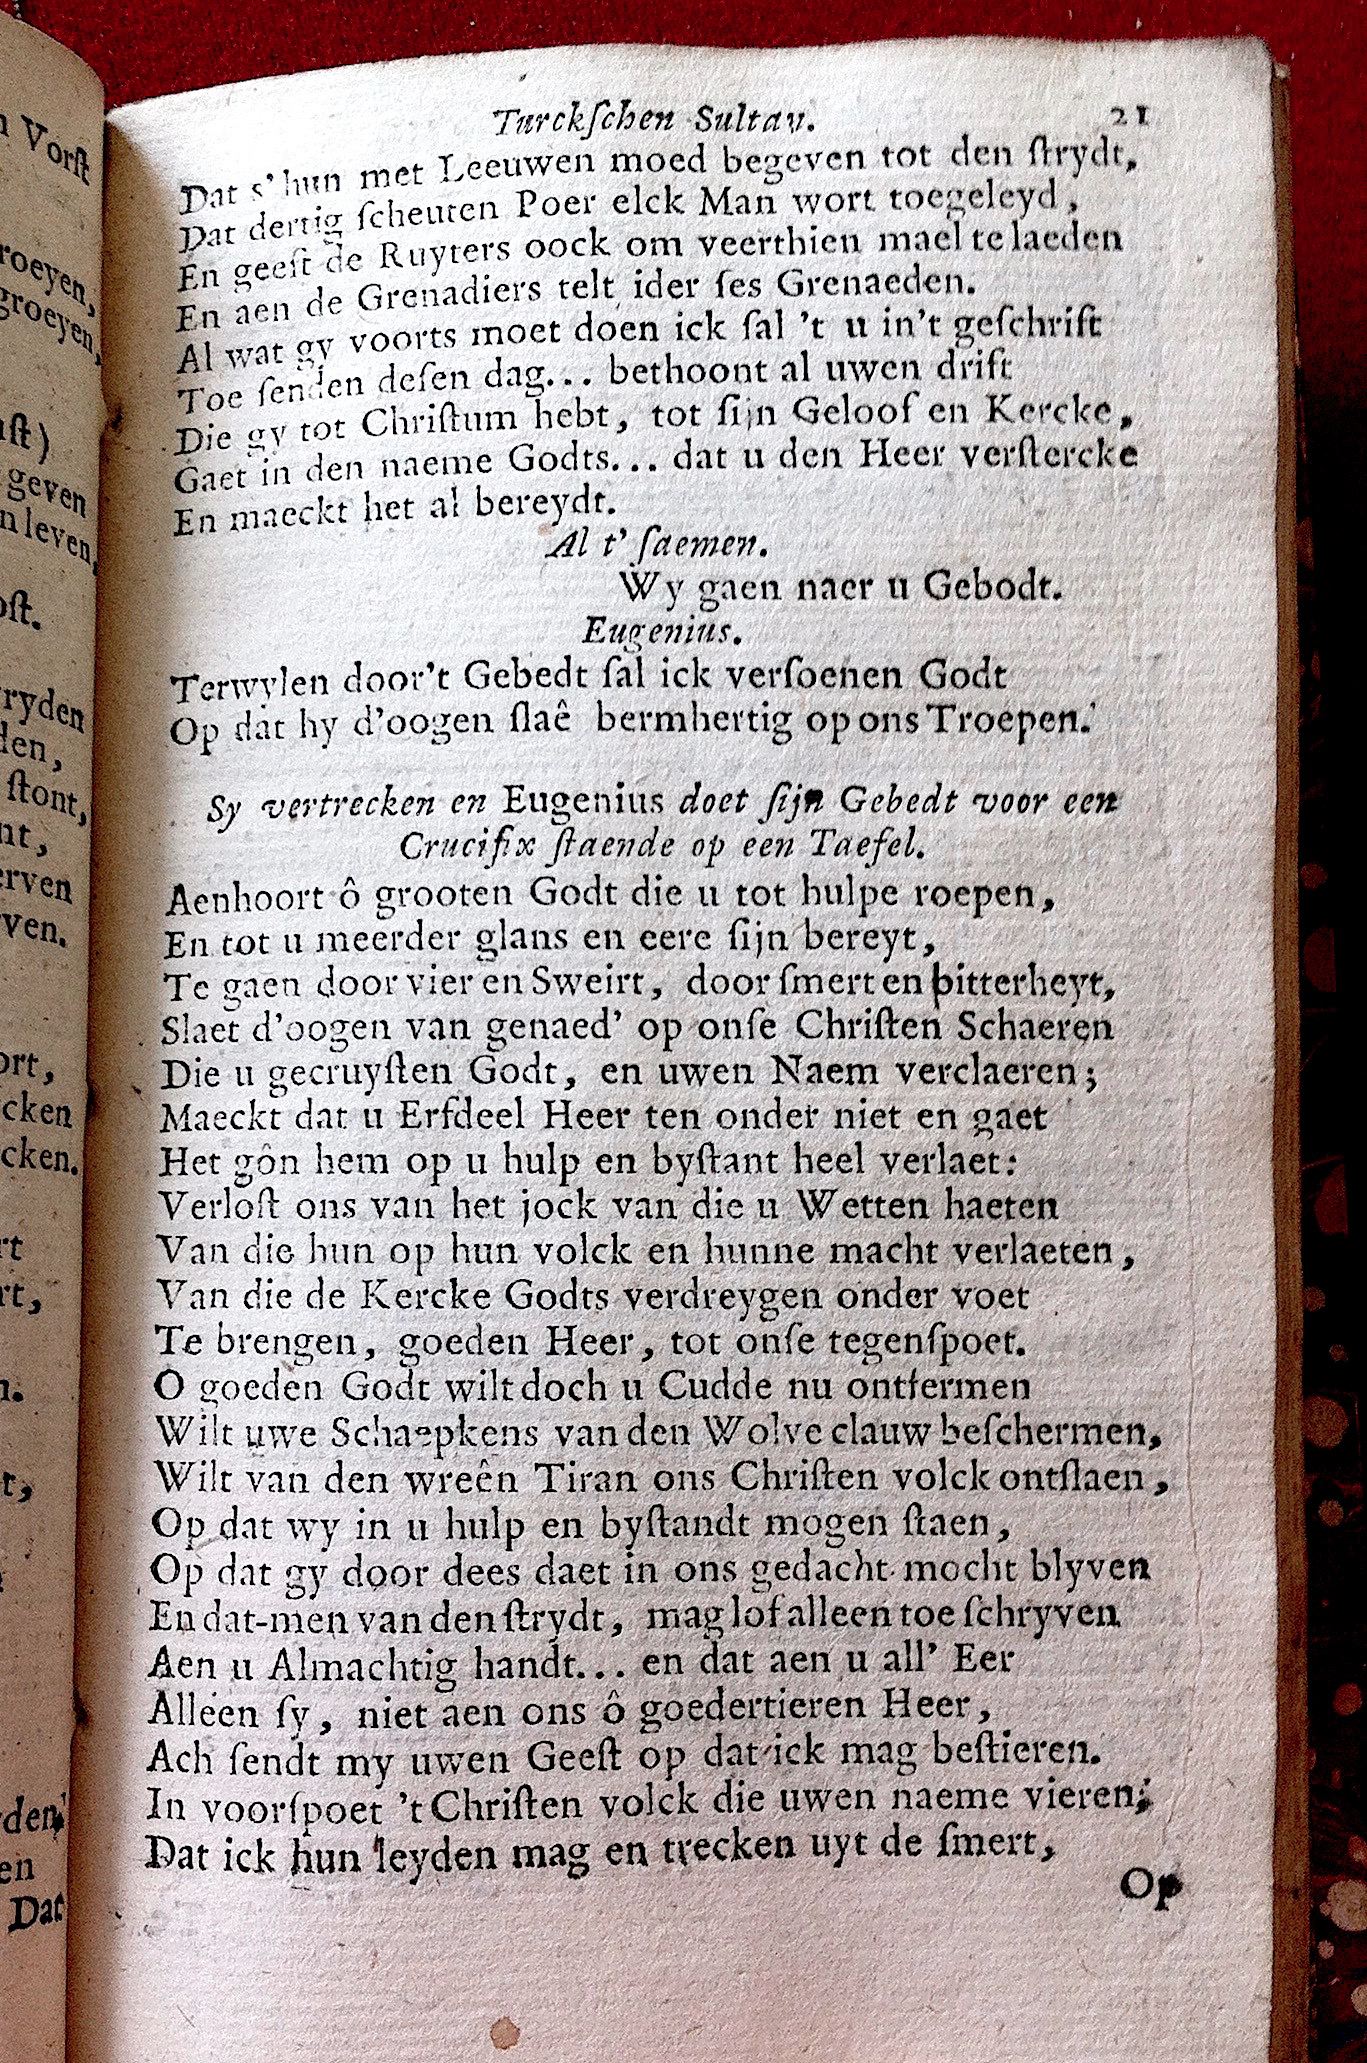 n Vorſt
roeyen,
groeyen,
ſt)
geven
n leven,
oſt.
ryden
den,
ſtont,
nt,
erven
ven.
ort,
cken
cken.
rt
rt,
n.
t,
den,
en
Dat
Turckſchen Sultav. 21
Dat s'hun met Leeuwen moed begeven tot den ſtrydt,
Dat dertig ſcheuten Poer elck Man wort toegeleyd,
En geeſt de Ruyters oock om veerthien mael te laeden
En aen de Grenadiers telt ider ſes Grenaeden.
Al wat gy voorts moet doen ick ſal 't u in't geſchrift
Toe ſenden deſen dag... bethoont al uwen drift
Die gy tot Chriſtum hebt, tot ſijn Geloof en Kercke,
Gaet in den naeme Godts... dat u den Heer verſtercke
En maeckt het al bereydt.
Al t'ſaemen.
Wy gaen naer u Gebodt.
Eugenius.
Terwylen door't Gebedt ſal ick verſoenen Godt
Op dat hy d'oogen ſlaê bermhertig op ons Troepen.
Sy vertrecken en Eugenius doet ſijn Gebedt voor een
Crucifix ſtaende op een Taefel.
Aenhoort ô grooten Godt die u tot hulpe roepen,
En tot u meerder glans en eere ſijn bereyt,
Te gaen door vier en Sweirt, door ſmert en bitterheyt,
Slaet d'oogen van genaed' op onſe Chriſten Schaeren
Die u gecruyſten Godt, en uwen Naem verclaeren;
Maeckt dat u Erfdeel Heer ten onder niet en gaet
Het gôn hem op u hulp en byſtant heel verlaet:
Verloſt ons van het jock van die u Wetten haeten
Van die hun op hun volck en hunne macht verlaeten,
Van die de Kercke Godts verdreygen onder voet
Te brengen, goeden Heer, tot onſe tegenſpoet.
O goeden Godt wilt doch u Cudde nu ontfermen
Wilt uwe Schaepkens van den Wolve clauw beſchermen,
Wilt van den wreên Tiran ons Chriſten volck ontſlaen,
Op dat wy in u hulp en byſtandt mogen ſtaen,
Op dat gy door dees daet in ons gedacht mocht blyven
En dat-men van den ſtrydt, mag lof alleen toe ſchryven
Aen u Almachtig handt... en dat aen u all' Eer
Alleen ſy, niet aen ons ô goedertieren Heer,
Ach ſendt my uwen Geeſt op dat ick mag beſtieren.
In voorſpoet 't Chriſten volck die uwen naeme vieren;
Dat ick hun leyden mag en trecken uyt de ſmert,
Op